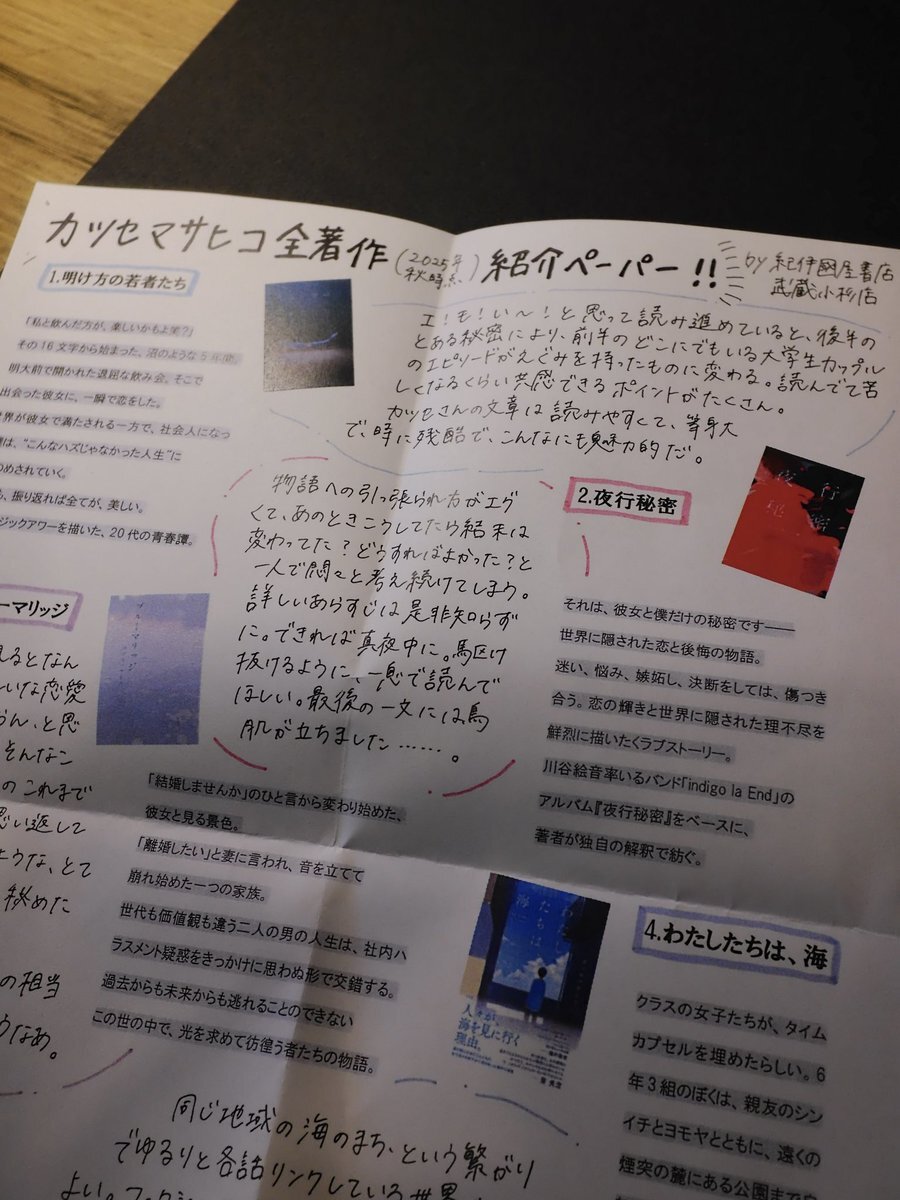 カツセマサヒコ全著作(2025年秋時点)紹介ペーパー!!
by 紀伊國屋書店
武蔵小杉店
1.明け方の若者たち
「私と飲んだ方が、楽しいかもよ笑?」
その16文字から始まった、沼のような5年間。
明大前で開かれた退屈な飲み会。そこで
出会った彼女に、一瞬で恋をした。
世界が彼女で満たされる一方で、社会人になっ
は、“こんなハズじゃなかった人生”に
のめされていく。
、振り返れば全てが、美しい。
ジックアワーを描いた、20代の青春譚。
エ!モ!い〜!と思って読み進めていると、後半の
とある秘密により、前半のどこにでもいる大学生カップル
のエピソードがえぐみを持ったものに変わる。読んでて苦
しくなるくらい共感できるポイントがたくさん。
カツセさんの文章は読みやすくて、等身大
で、時に残酷で、こんなにも魅力的だ。
2.夜行秘密
夜行
秘密
物語への引っ張られ方がエグ
くて、あのときこうしてたら結末は
変わってた?どうすればよかった?と
一人で悶々と考え続けてしまう。
詳しいあらすじは是非知らず
に。できれば真夜中に。駆け
抜けるように、一息で読んで
ほしい。最後の一文には鳥
肌が立ちました……。
それは、彼女と僕だけの秘密です――
世界に隠された恋と後悔の物語。
迷い、悩み、嫉妬し、決断をしては、傷つき
合う。恋の輝きと世界に隠された理不尽を
鮮烈に描いたラブストーリー。
川谷絵音率いるバンド「indigo la End」の
アルバム『夜行秘密』をベースに、
著者が独自の解釈で紡ぐ。
ーマリッジ
ブルーマリッジ
見るとなん
いな恋愛
うん、と思
そんなこ
のこれまで
思い返して
ような、とて
秘めた
の相当
うなぁ。
「結婚しませんか」のひと言から変わり始めた、
彼女と見る景色。
「離婚したい」と妻に言われ、音を立てて
崩れ始めた一つの家族。
世代も価値観も違う二人の男の人生は、社内ハ
ラスメント疑惑をきっかけに思わぬ形で交錯する。
過去からも未来からも逃れることのできない
この世の中で、光を求めて彷徨う者たちの物語。
わたし
たちは、
海
人々が
海を見に行く
理由。
4.わたしたちは、海
クラスの女子たちが、タイム
カプセルを埋めたらしい。6
年3組のぼくは、親友のシン
イチとヨモヤとともに、遠くの
煙突の麓にある公園まで
同じ地域の海のまち、という繋がり
でゆるりと各話リンクしている世界
よい。